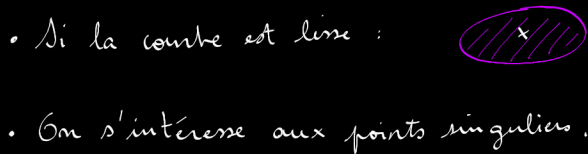 • Si la courbe est lisse :
• On s'intéresse aux points singuliers.